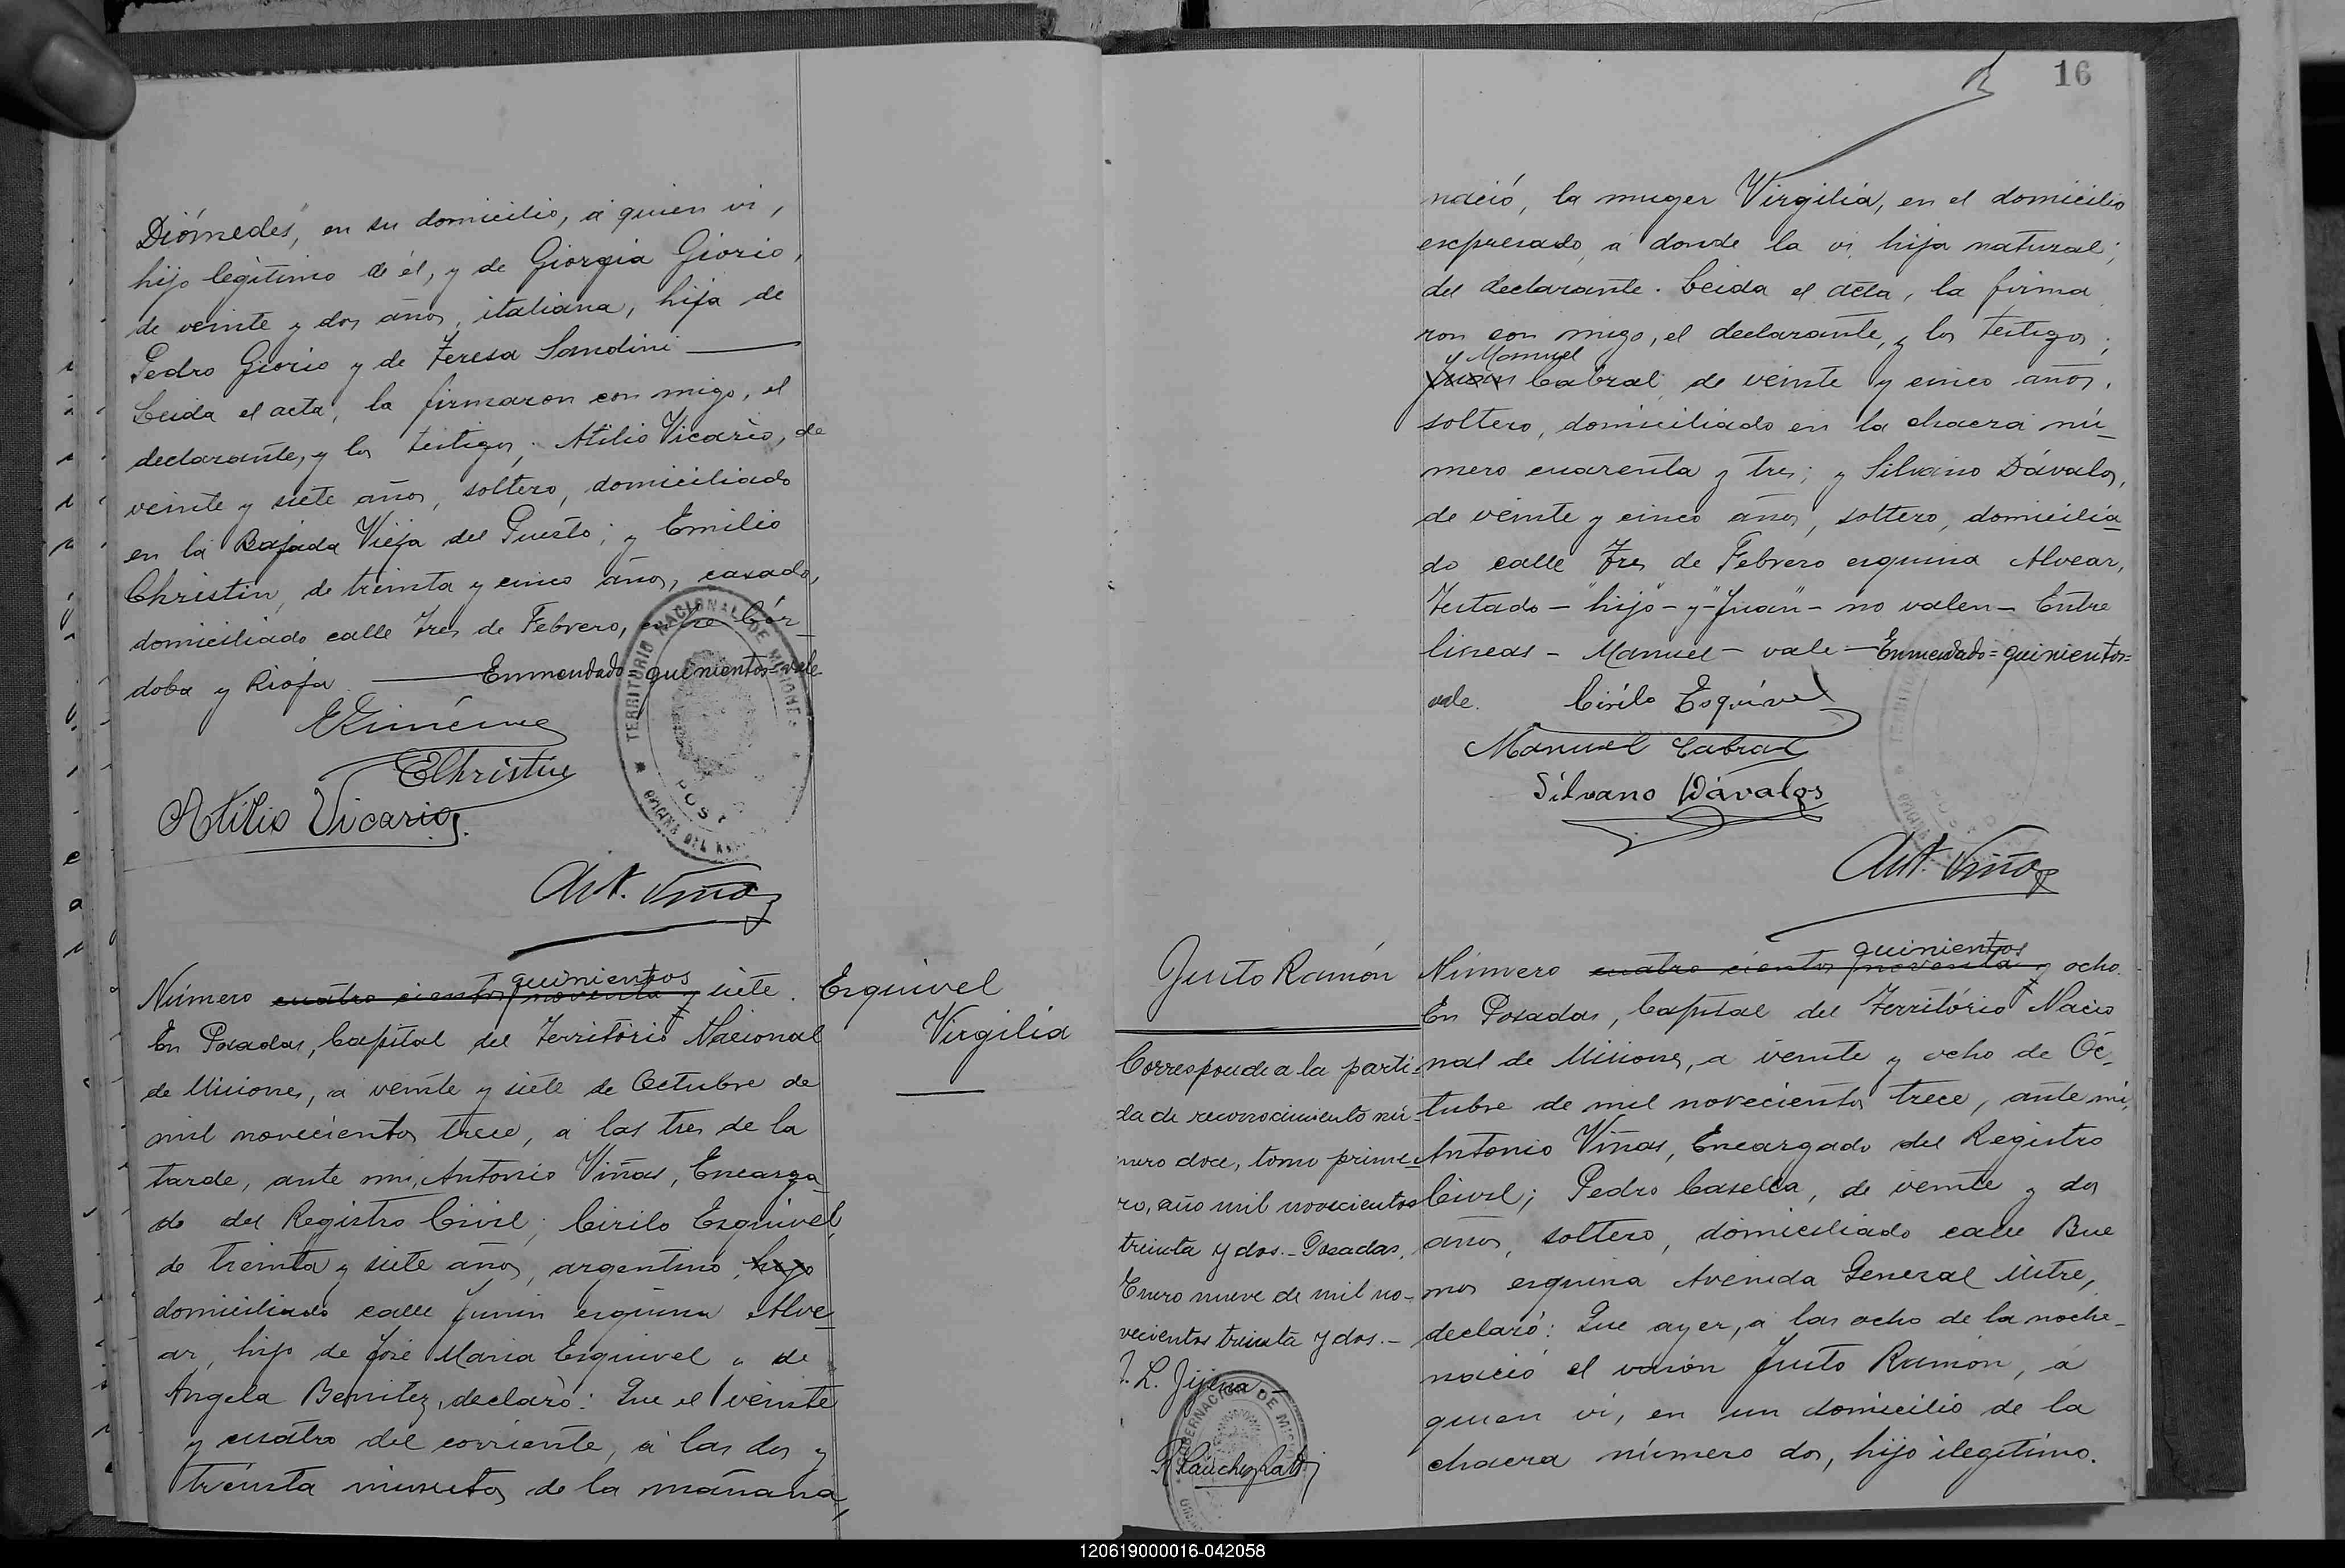 Diómedes, en su domicilio, a quien vi,
hijo legítimo de él, y de Giorgia Giorio,
de veinte y dos años, italiana, hija de
Pedro Giorio y de Teresa Sandini
Leida el acta, la firmaron con migo, el
declarante, y los testigos; Atilio Vicario, de
veinte y siete años, soltero, domiciliado
en la Bajada Vieja del Puerto; y Emilio
Christin, de treinta y cinco años, casado,
domiciliado calle Tres de Febrero, entre Cór-
doba y Rioja. Enmendado=quinientos=vale
TERRITORIO NACIONAL DE MISIONES
EChristin
Atilio Vicario
Ant. Viñas
quinientos
Número cuatro cientos noventa y siete.
En Posadas, Capital del Territorio Nacional
de Misiones, a veinte y siete de Octubre de
mil novecientos trece, a las tres de la
tarde, ante mi, Antonio Viñas, Encarga-
do del Registro Civil; Cirilo Esquivel,
de treinta y siete años, argentino, hijo
domiciliado calle Junin esquina Alve-
ar, hijo de José Maria Esquivel y de
Angela Benitez, declaró: Que el veinte
y cuatro del corriente, a las dos y
treinta minutos de la mañana,
Esquivel
Virgilia
16
nació, la muger Virgilia, en el domicilio
expresado, a donde la vi, hija natural;
del declarante. Leida el acta, la firma
ron con migo, el declarante, y los testigos;
y Manuel
Juan Cabral, de veinte y cinco años,
soltero, domiciliado en la chacra nú-
mero cuarenta y tres; y Silvano Dávalos,
de veinte y cinco años, soltero, domicilia-
do calle Tres de Febrero esquina Alvear,
Testado - "hijo" - y "Juan" - no valen - Entre
lineas - Manuel - vale - Enmendado=quinientos=
vale. Cirilo Esquivel
Manuel Cabral
Silvano Dávalos
Ant. Viñas
Justo Ramón
Corresponde a la parti-
da de reconocimiento nú-
mero doce, tomo prime-
ro, año mil novecientos
treinta y dos.- Posadas,
Enero nueve de mil no-
vecientos treinta y dos.-
quinientos
Número cuatro cientos noventa y ocho.
En Posadas, Capital del Territorio Nacio
nal de Misiones, a veinte y ocho de Oc-
tubre de mil novecientos trece, ante mi,
Antonio Viñas, Encargado del Registro
Civil; Pedro Casella, de veinte y dos
años, soltero, domiciliado calle Bue
nos esquina Avenida General Mitre,
declaró: Que ayer, a las ocho de la noche-
nació el varón Justo Ramón, á
quien vi, en un domicilio de la
chacra número dos, hijo ilegítimo.
120619000016-042058